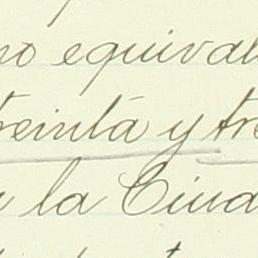 no equival
treinta y tre
la Ciud